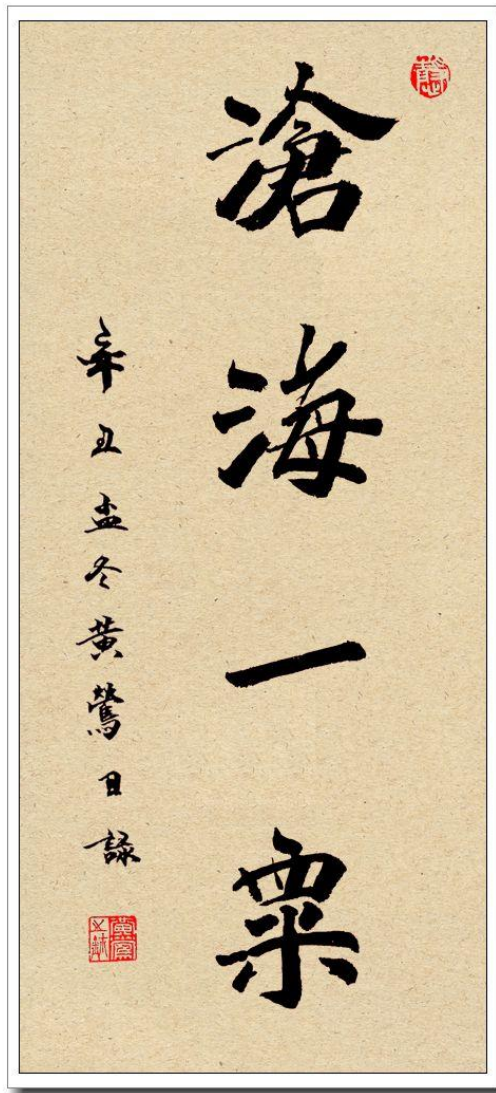 滄海一粟
辛丑孟冬黄鶯日録